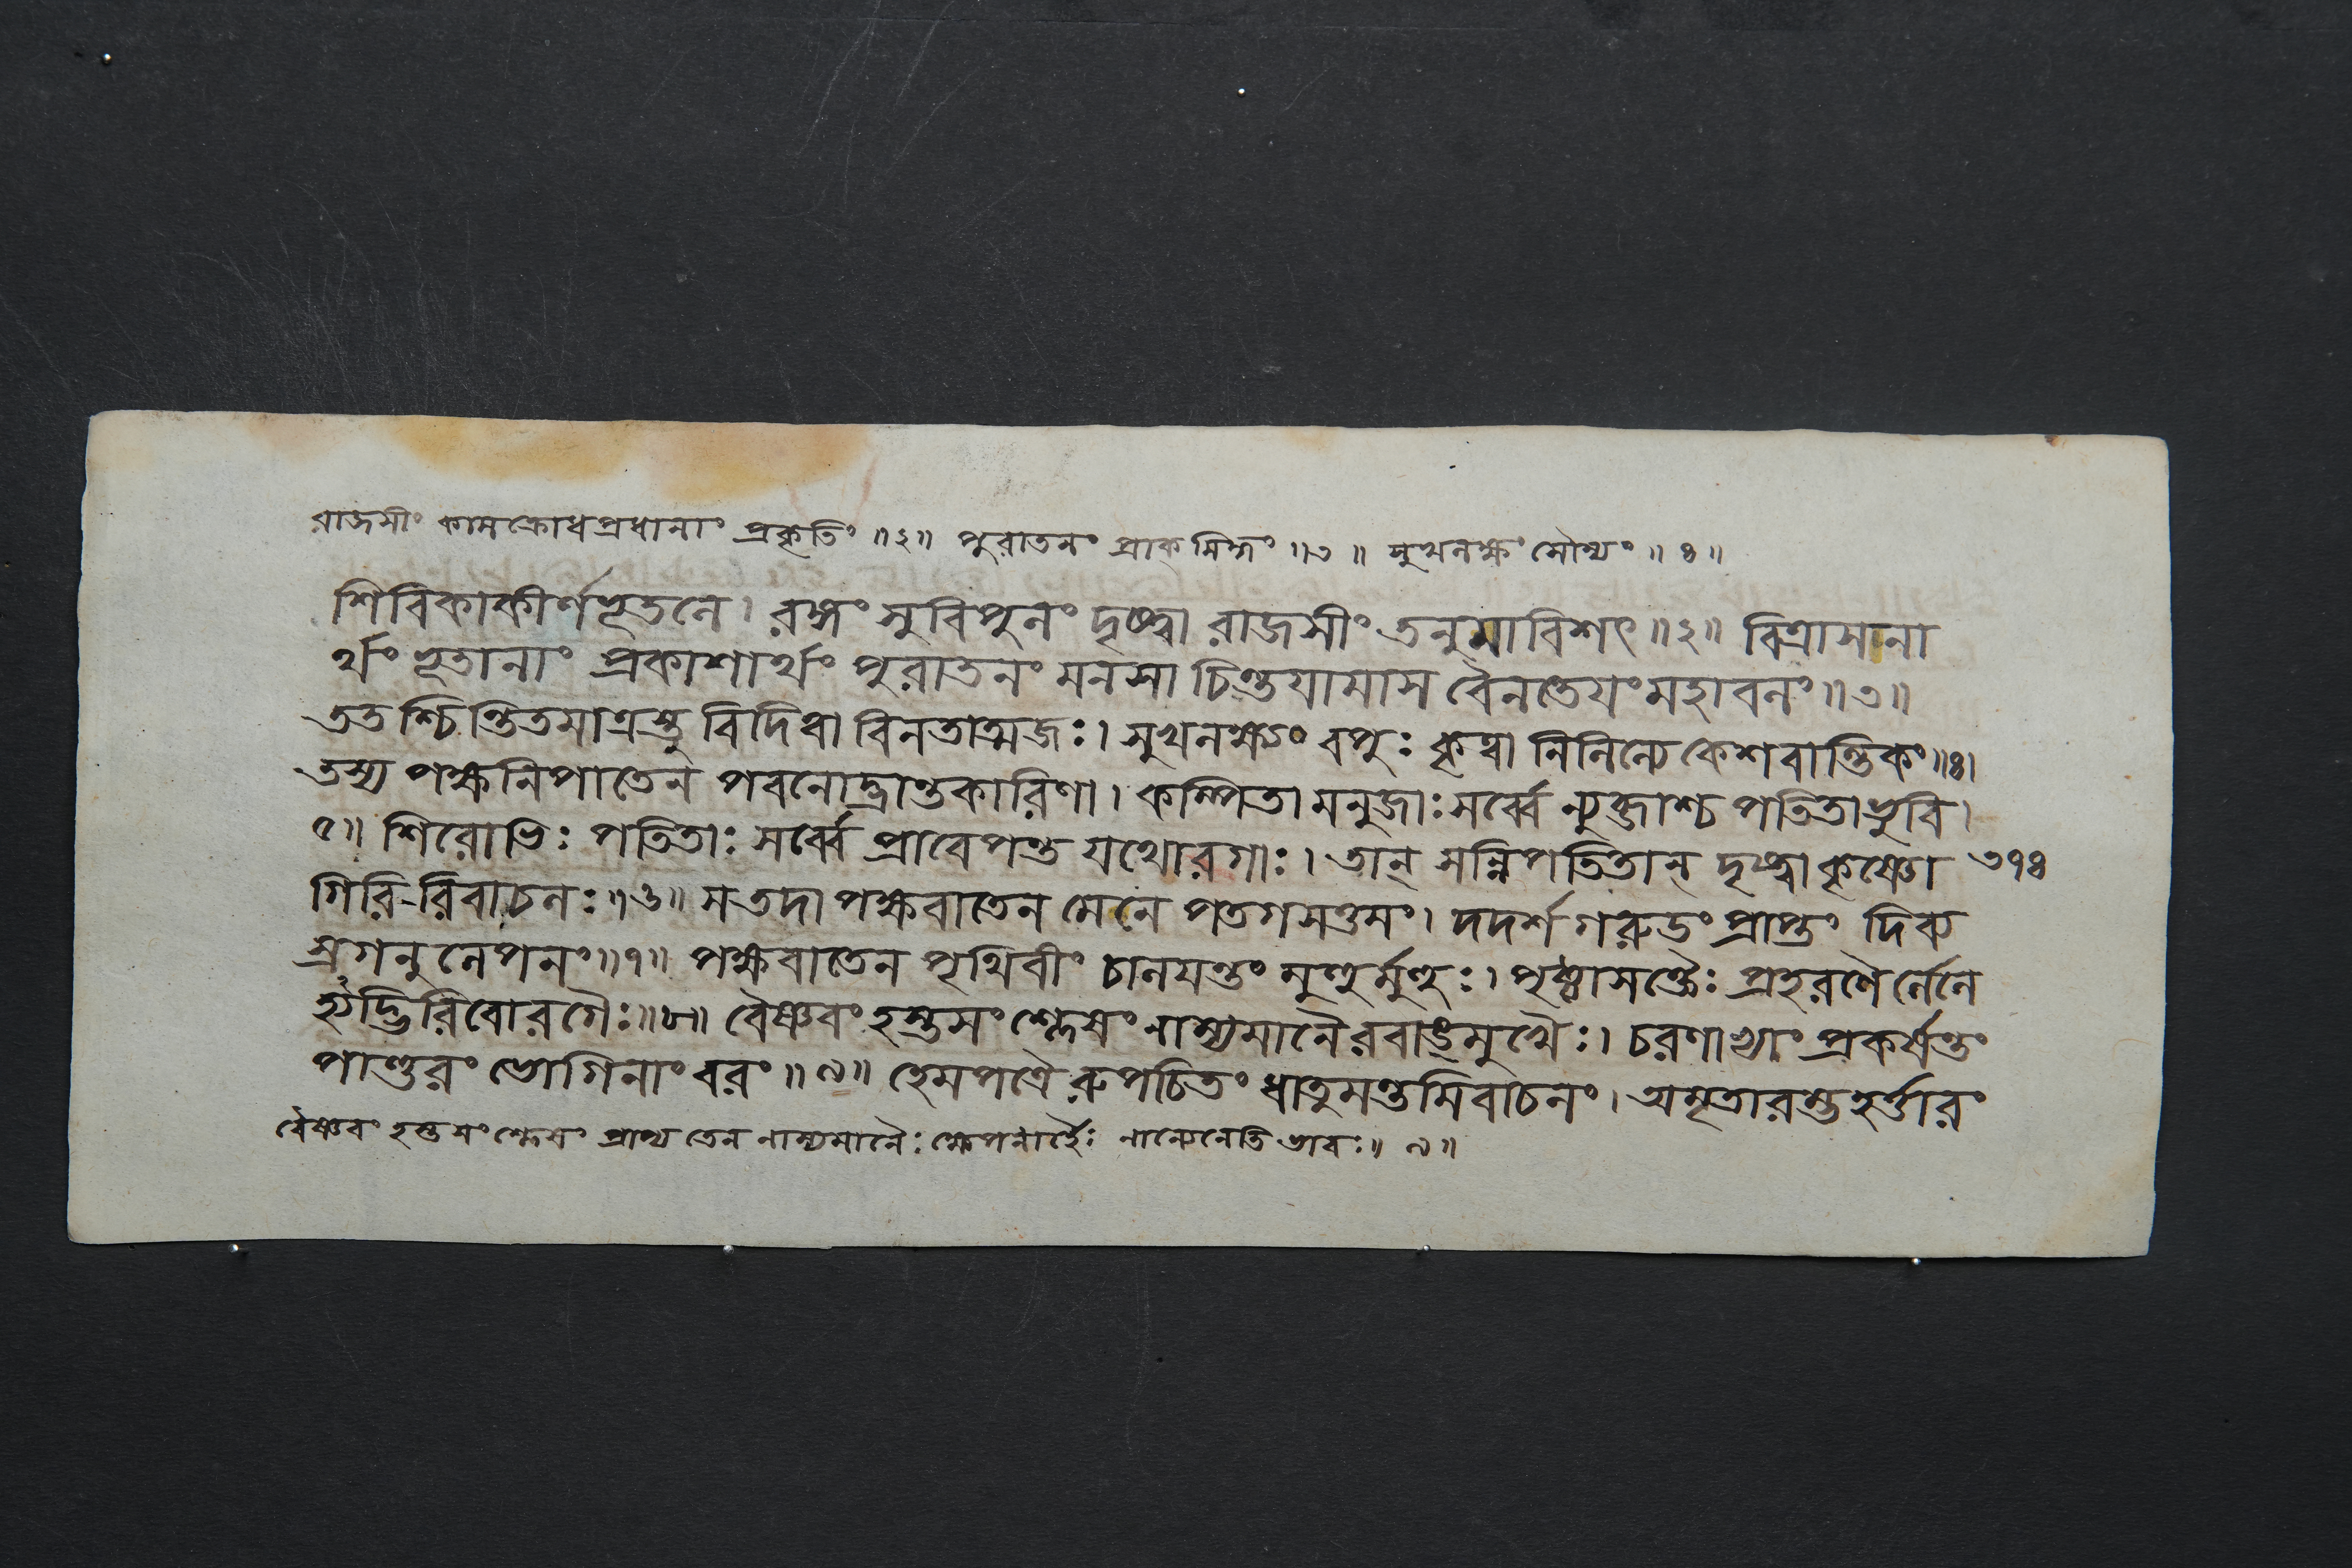 রাজসীং কামক্রোধপ্রধানাং প্রকৃতিং ॥২॥ পুরাতনং প্রাক্ সিদ্ধং ॥৩॥ সুখলক্ষং সৌম্যং ॥৪॥
শিবিকাকীর্ণভূতলে। রঙ্গং সুবিপুলং দৃষ্ট্বা রাজসীং তনুমাবিশৎ॥২॥ বিত্রাসনা
র্থং ভূতানাং প্রকাশার্থং পুরাতনং মনসা চিন্তয়ামাস বৈনতেয়ং মহাবলং॥৩॥
ততশ্চিন্তিতমাত্রস্তু বিদিত্বা বিনতাত্মজঃ। সুখলক্ষ্যং বপুঃ কৃত্বা নিলিল্যে কেশবান্তিকং॥৪।
তস্য পক্ষনিপাতেন পবনোদ্ভ্রান্তকারিণা। কম্পিতা মনুজাঃ সর্ব্বে ন্যুব্জাশ্চ পতিতা ভুবি।
৫॥ শিরোভিঃ পতিতাঃ সর্ব্বে প্রাবেপন্ত যথোরগাঃ। তান্ সন্নিপতিতান্ দৃষ্ট্বা কৃষ্ণো ৩৭৪
গিরিরিবাচলঃ॥৬॥ স তদা পক্ষবাতেন মেনে পতগসত্তমং। দদর্শ গরুডং প্রাপ্তং দিব্য
স্রগনুলেপনং॥৭॥ পক্ষবাতেন পৃথিবীং চালয়ন্তং মুহুর্মুহুঃ। পৃষ্ঠাসক্তৈঃ প্রহরণৈর্লেলি
হ্যদ্ভিরিবোরগৈঃ॥৮॥ বৈষ্ণবং হস্তসংশ্লেষং নাম্যমানৈরবাঙ্মুখৈঃ। চরণাভ্যাং প্রকর্ষন্তং
পাণ্ডুরং ভোগিনাং বরং॥৯॥ হেমপত্রৈরুপচিতং ধাতুমন্তমিবাচলং। অমৃতারম্ভহর্ত্তারং
বৈষ্ণবং হস্তসংশ্লেষং প্রাপ্য তেন নাম্যমানৈঃ ক্ষেপনার্হৈঃ নান্যেনেতি ভাবঃ॥ ৯॥